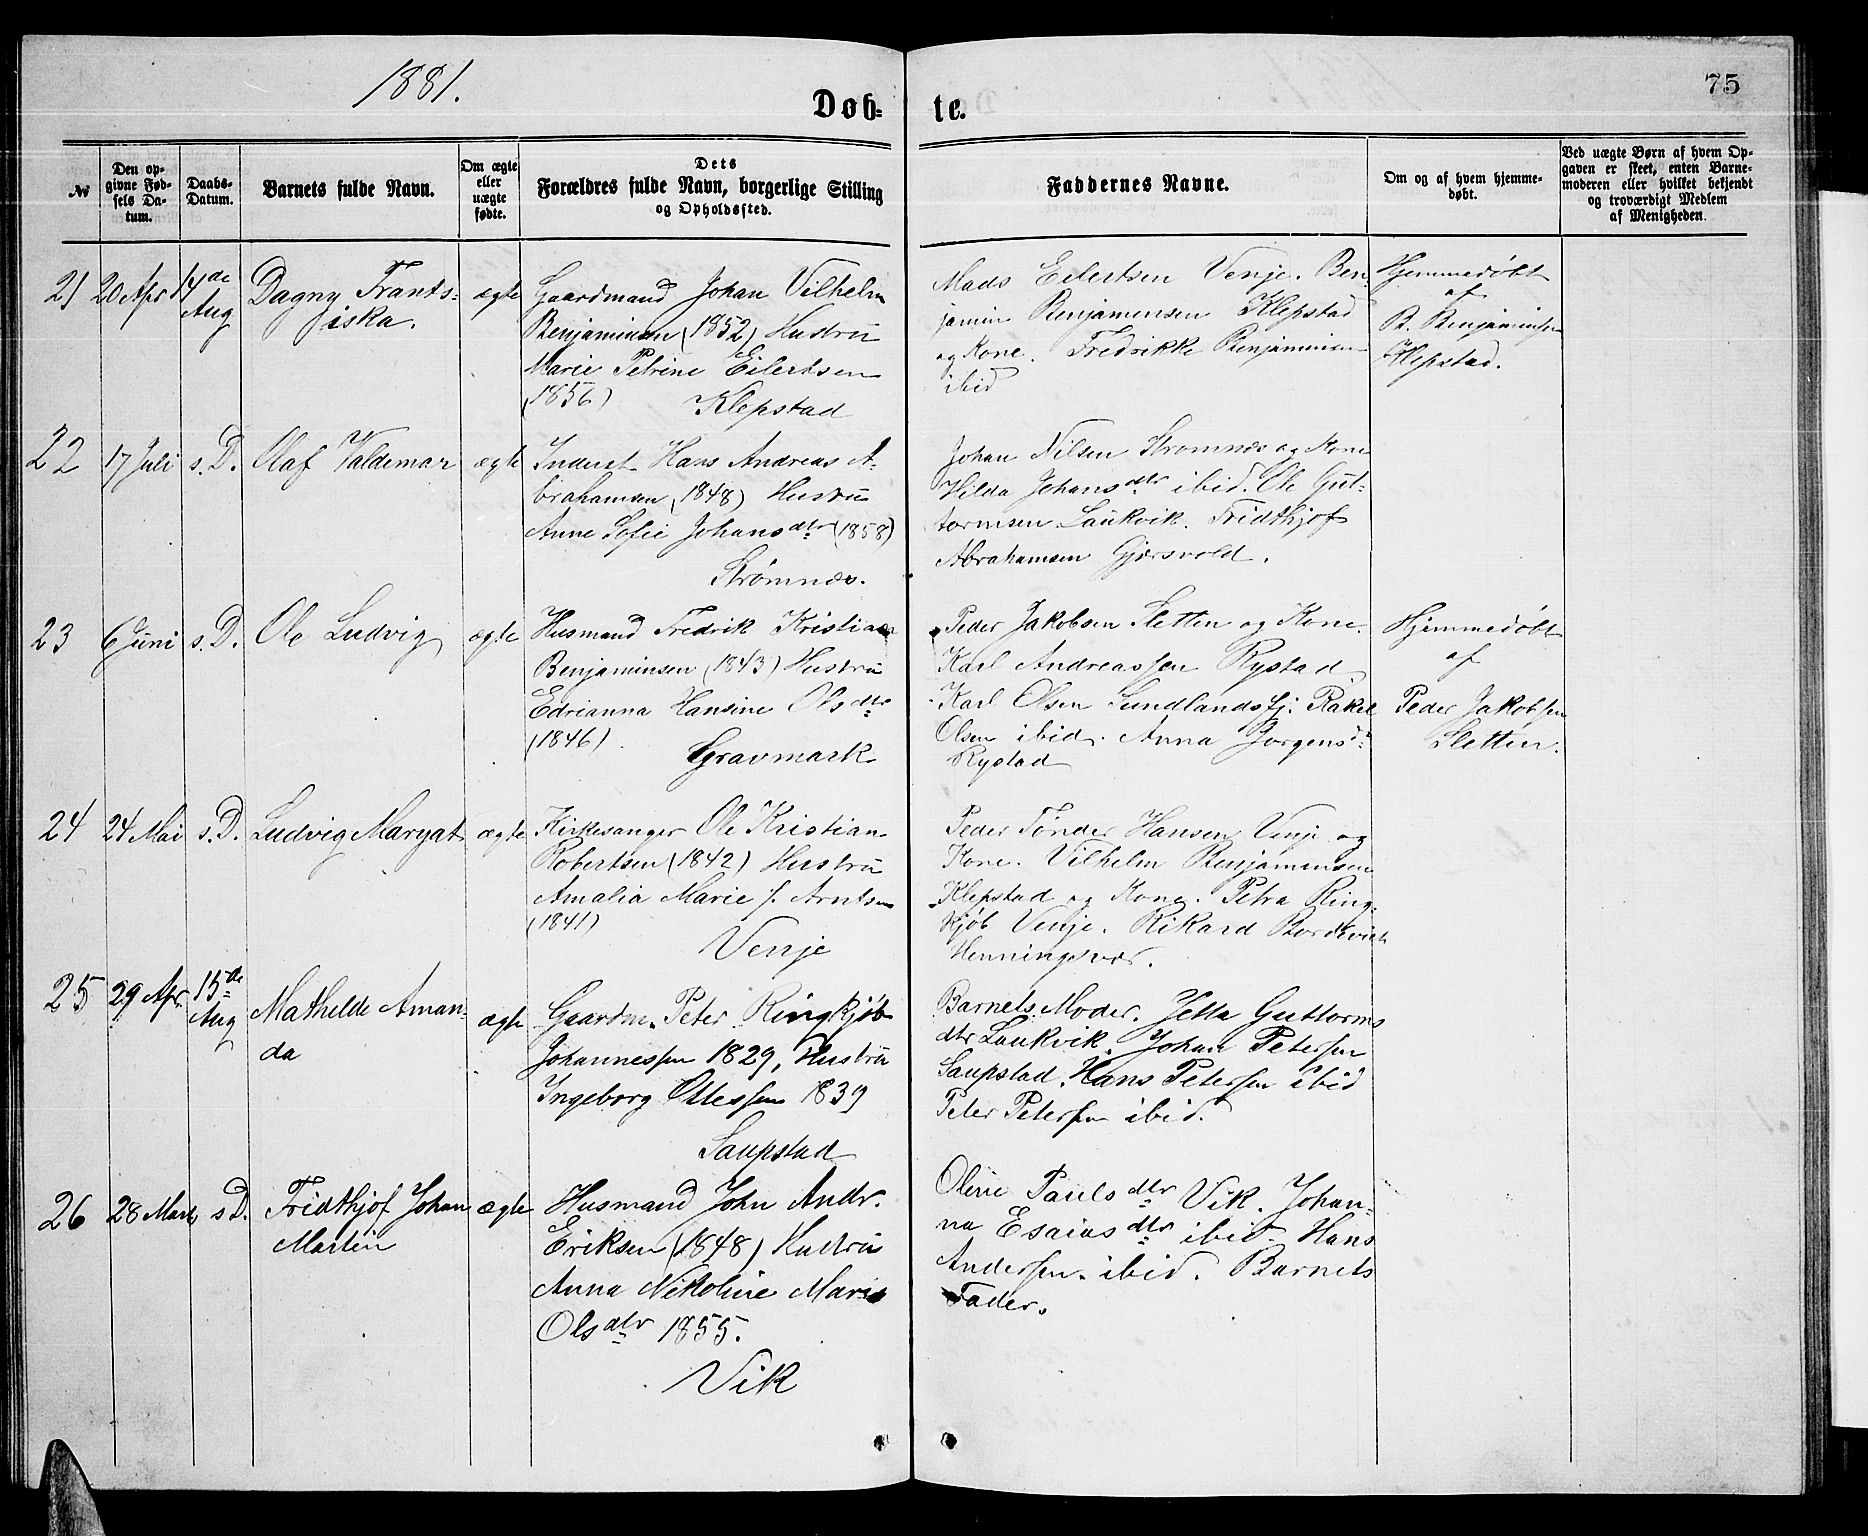 1881.
Døb-
te.
75
№
Den op-
givne Fød-
sels Da-
tum.
Daabs-
Datum.
Barnets fulde Navn.
Om ægte
eller
uægte
fødte.
Dets
Forældres fulde Navn, borgerlige Stilling
og Opholdssted.
Faddernes Navne.
Om og af hvem hjemme-
døbt.
Ved uægte Børn af hvem Op-
gaven er skeet, enten Barne-
moderen eller hvilket bekjendt
og troværdigt Medlem
af Menigheden.
21 20 Apr 14de Aug
Dagny Frants-
iska.
ægte
Gaardmand Johan Vilhelm
Benjaminsen (1852) Hustru
Marie Petrine Eilertsen
(1856) Klepstad
Mads Eilertsen Venje. Ben-
jamin Benjamensen Klepstad
og Kone. Fredrikke Benjaminsen
ibid
Hjemmedøbt
af
B. Benjaminsen
Klepstad.
22 17 Juli s. D. Olaf Valdemar ægte
Inderst Hans Andreas A-
brahamsen (1848) Hustru
Anne Sofie Johansdtr (1858)
Strømnæs.
Johan Nilsen Strømnæs og Kone
Hilda Johansdtr ibid. Ole Gut-
tormsen Laukvik. Fridthjof
Abrahamsen Gjærsvold.
23 6 Juni s. D. Ole Ludvig ægte
Husmand Fredrik Kristian
Benjaminsen (1843) Hustru
Edrianna Hansine Olsdtr
(1846). Gravmark
Peder Jakobsen Sletten og Kone.
Karl Andreassen Rystad
Karl Olsen Sundlandsfj. Rakel
Olsen ibid. Anna Jørgensd.
Rystad
Hjemmedøbt
af
Peder Jakobsen
Sletten.
24 24 Mai s. D. Ludvig Maryat ægte
Kirkesanger Ole Kristian
Robertsen (1842) Hustru
Amalia Marie f. Arntsen
(1841)
Venje
Peder Tønder Hansen Venje og
Kone. Vilhelm Benjamensen
Klepstad og Kone. Petra Ring-
kjøb Venje. Rikard Bordevich
Henningsvær.
25 29 Apr. 15de Aug
Mathelde Aman-
da
ægte
Gaardm. Peter Ringkjøb
Johannessen 1829, Hustru
Ingeborg Ottessen 1839
Saupstad
Barnets Moder. Jetta Guttorms
dtr Laukvik. Johan Petersen
Saupstad. Hans Petersen ibid
Peter Petersen ibid.
26 28 Marts s D.
Fridthjof Johan
Martin
ægte
Husmand John Andr.
Eriksen (1848) Hustru
Anna Nikoline Marie
Olsdtr 1855.
Vik
Oline Paulsdtr Vik. Johan-
na Esaiasdtr ibid. Hans
Andersen. ibid. Barnets
Fader.